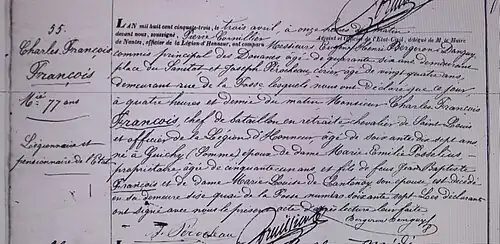 55.
Charles François
François
M.ié 77 ans
Légionnaire et
pensionnaire de l'Etat
LAN mil huit cent cinquante-trois, le trois avril à onze heures du matin
devant nous, soussigné, Pierre Cumilier Adjoint et Officier de l'Etat-Civil, délégué de M. le Maire
de Nantes, officier de la Légion d'Honneur, ont comparu Messieurs Eugène Henri Bergeron-Danguy
commis principal des Douanes âgé de quarante six ans demeurant
place du Sanitat et Joseph Pérocheau cirier âgé de vingt quatre ans,
demeurant rue de la Fosse lesquels nous ont déclaré que ce jour
à quatre heures et demi du matin Monsieur Charles François
François chef de bataillon en retraite chevalier de Saint-Louis
et officier de la Légion d'Honneur âgé de soixante dix sept ans
né à Guichy (Somme) époux de dame Marie Emilie Posselius
propriétaire, âgée de cinquante cinq ans, et fils de feus Jean Baptiste
François et de dame Marie Louise de Cantenay son épouse, est décédé
en sa demeure sise quai de la Fosse numéro soixante sept. Les déclarants
ont signé avec nous le présent acte après lecture leur faite
J. Pérocheau